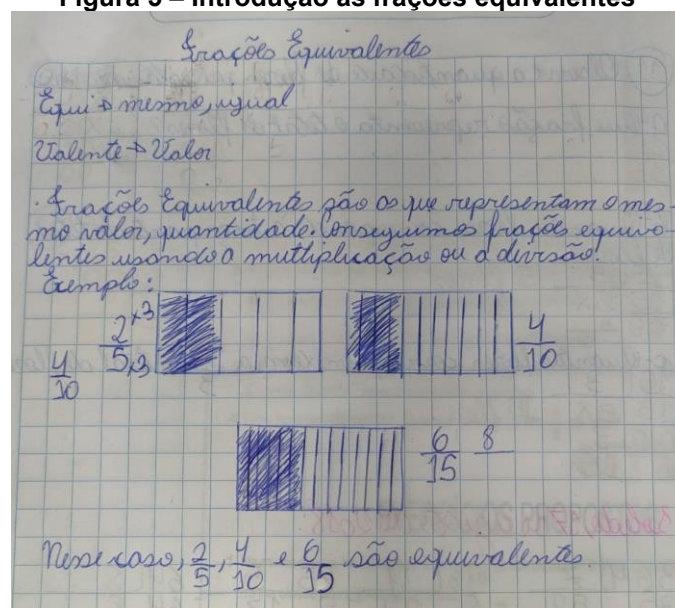 Figura 3 – Introdução às frações equivalentes
Frações Equivalentes
Equi → mesmo, igual
Valente → Valor
· Frações Equivalentes são as que representam o mes-
mo valor, quantidade. Conseguimos frações equiva-
lentes usando a multiplicação ou a divisão.
Exemplo:
4/10 2/5 x3 x3 4/10
6/15 8/
Nesse caso, 2/5, 4/10 e 6/15 são equivalentes.